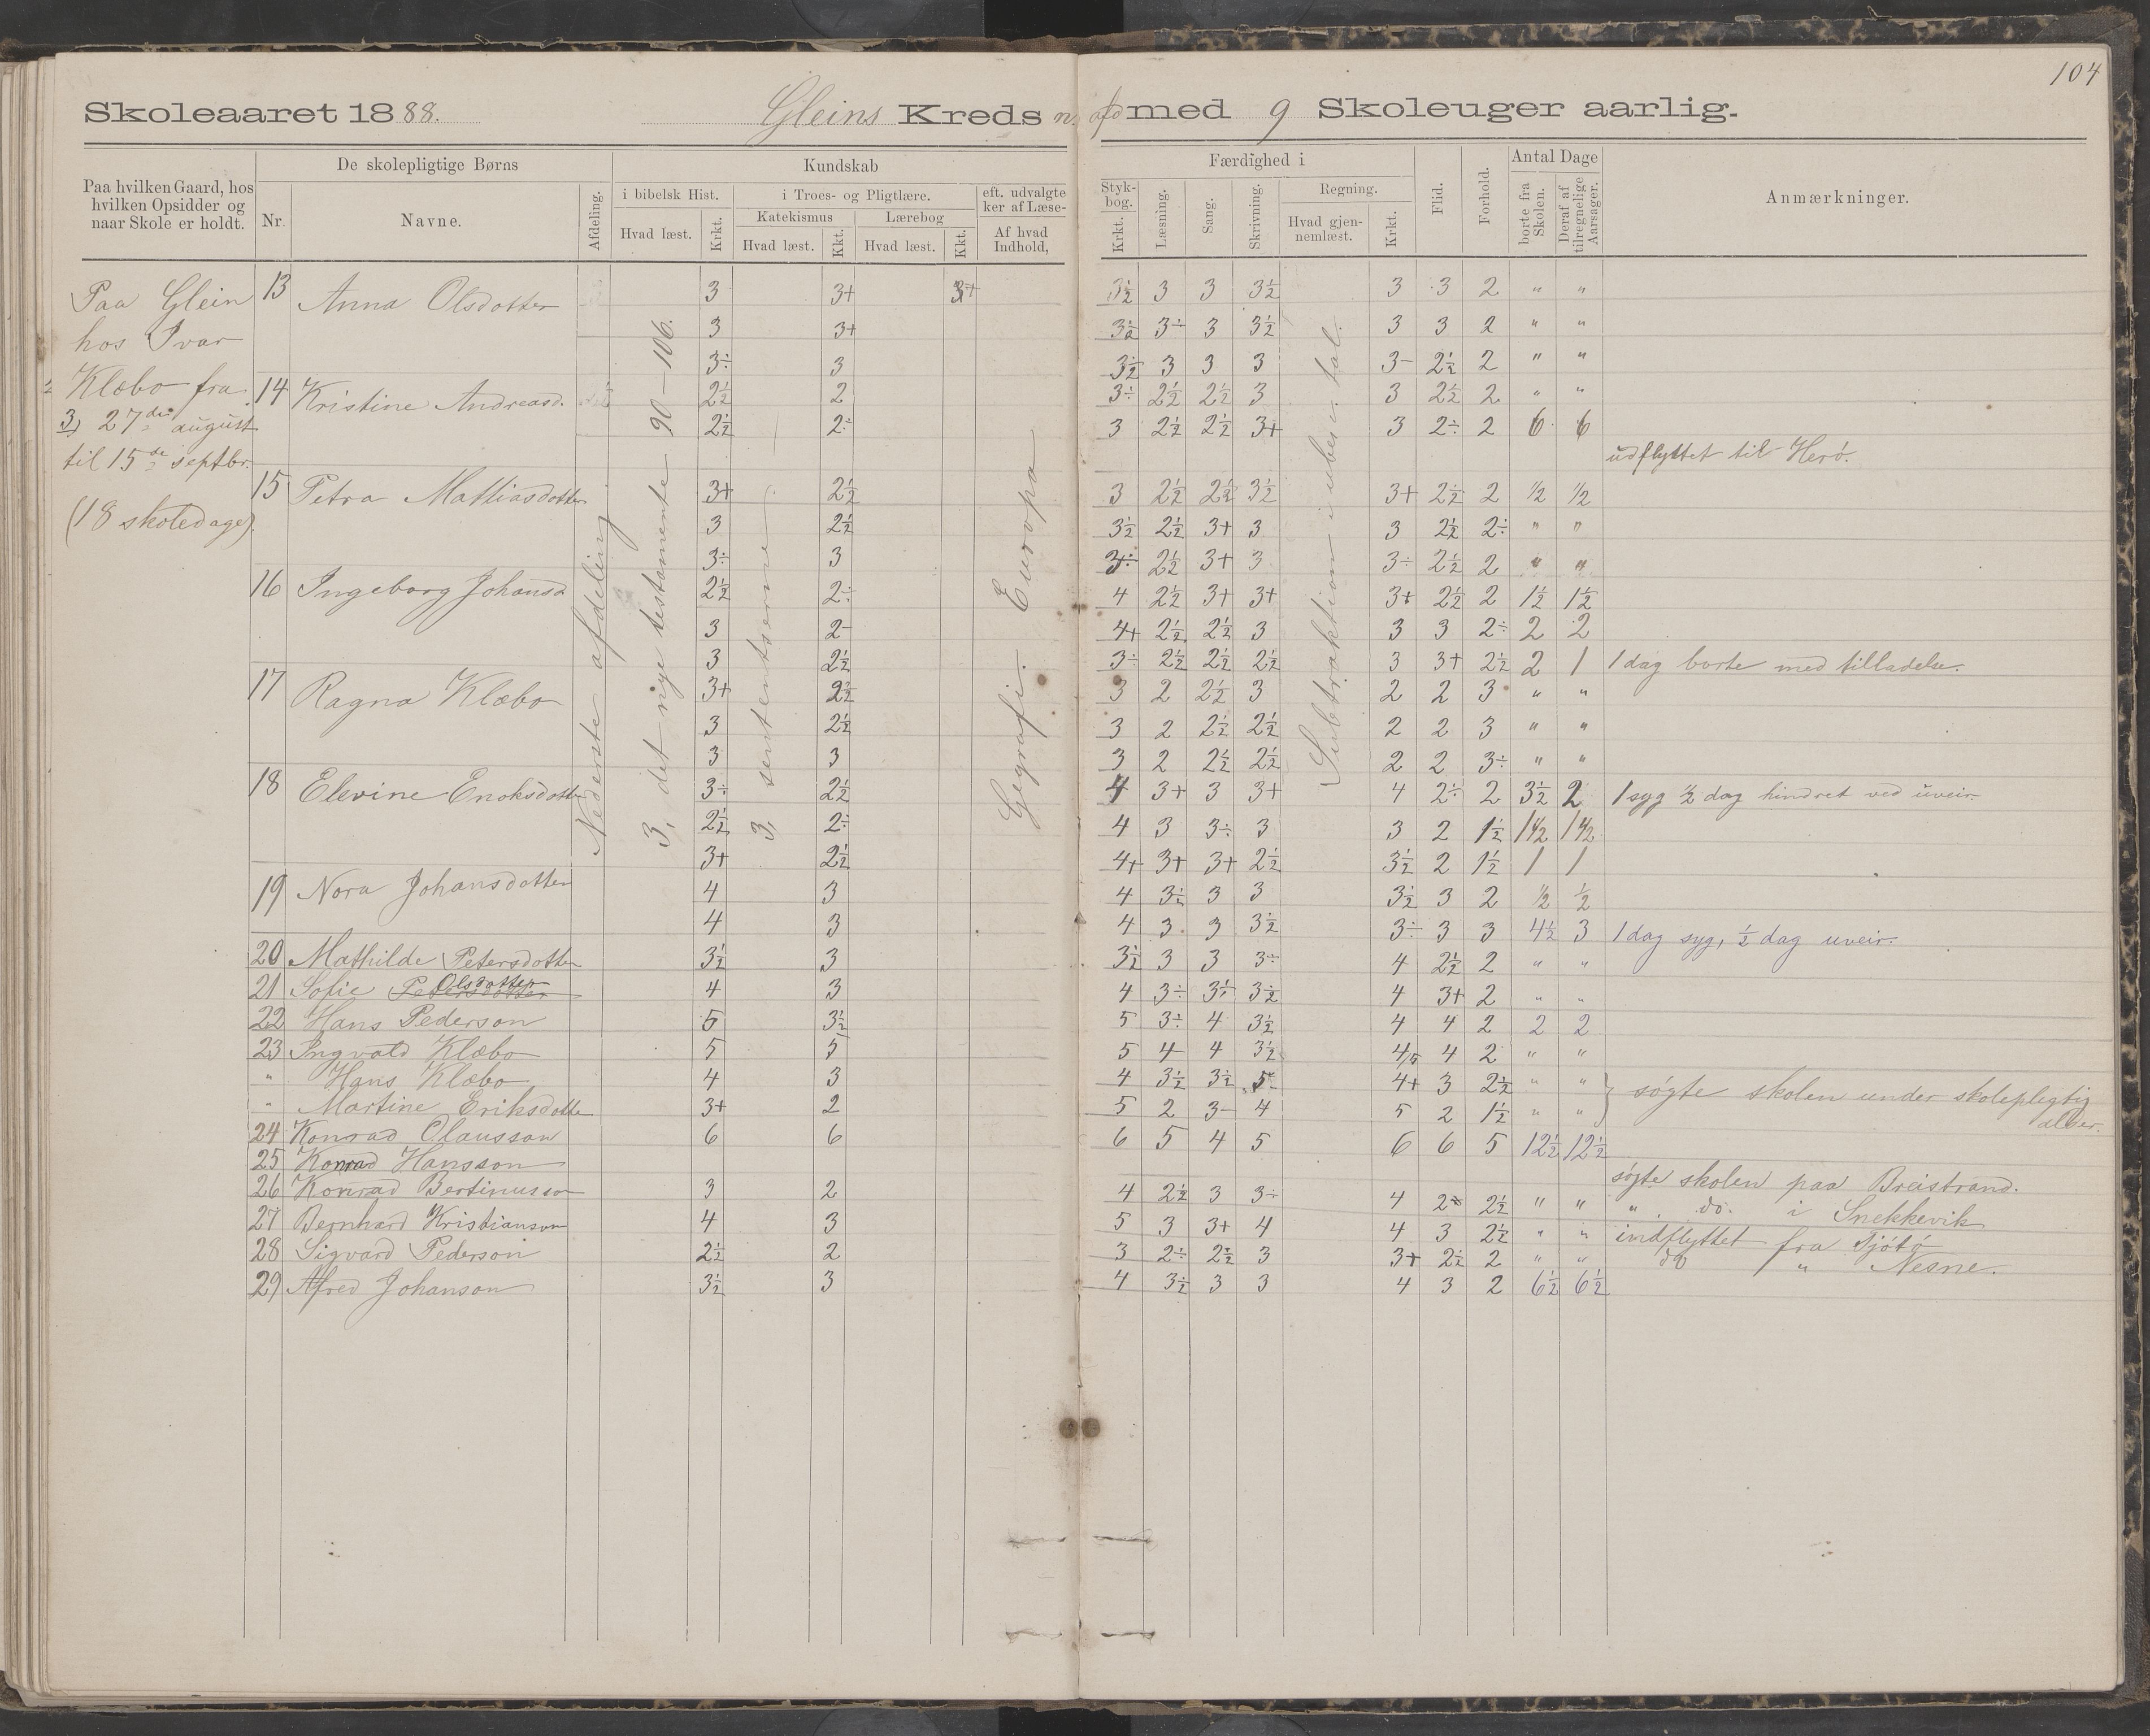 104
Skoleaaret 1888. Gleins Kreds med 9 Skoleuger aarlig.
Paa hvilken Gaard, hos hvilken Opsidder og naar Skole er holdt.
De skolepligtige Børns
Nr. Navne. Afdeling.
Kundskab
i bibelsk Hist. i Troes- og Pligtlære. eft. udvalgte ker af Læse-
Hvad læst. Krkt. Katekismus Lærebog Af hvad Indhold,
Hvad læst. Kkt. Hvad læst. Kkt.
Færdighed i
Styk-bog. Krkt. Læsning. Sang. Skrivning. Regning. Hvad gjen-nemlæst. Krkt.
Flid. Forhold. Antal Dage borte fra Skolen. Deraf af tilregnelige Aarsager.
Anmærkninger.
Paa Glein
hos Ivar
Klæbo fra
3) 27de august
til 15de septbr.
(18 skoledage).
Nederste afdeling
3, det nye testamente 90–106.
3, sententserne
Gegrafi. Europa
Subtraktion i ubesv. tal.
13 Anna Olsdotter 3 3+ 3+ 3½ 3 3 3½ 3 3 2 " "
3 3+ 3½ 3÷ 3 3½ 3 3 2 " "
3÷ 3 3½ 3 3 3 3- 2½ 2 " "
14 Kristine Andreasd. 2½ 2 3÷ 2½ 2½ 3 3 2½ 2 " "
2½ 2÷ 3 2½ 2½ 3+ 3 2÷ 2 6 6
udflyttet til Herö.
15 Petra Mathiasdotter 3+ 2½ 3 2½ 2½ 3½ 3+ 2½ 2 ½ ½
3 2½ 3½ 2½ 3+ 3 3 2½ 2÷ " "
3÷ 3 3÷ 2½ 3+ 3 3÷ 2½ 2 " "
16 Ingeborg Johansd 2½ 2÷ 4 2½ 3+ 3+ 3+ 2½ 2 1½ 1½
3 2- 4+ 2½ 2½ 3 3 3 2÷ 2 2
3 2½ 3÷ 2½ 2½ 2½ 3 3+ 2½ 2 1 1 dag borte med tilladelse.
17 Ragna Klæbo 3+ 2½ 3 2 2½ 3 2 2 3 " "
3 2½ 3 2 2½ 2½ 2 2 3 " "
3 3 3 2 2½ 2½ 2 2 3÷ " "
18 Elevine Enoksdotter 3÷ 2½ 4 3+ 3 3+ 4 2÷ 2 3½ 2 1 syg ½ dag hindret ved uveir.
2½ 2÷ 4 3 3÷ 3 3 2 1½ 1½ 1½
3+ 2½ 4+ 3+ 3+ 2½ 3½ 2 1½ 1 1
19 Nora Johansdotter 4 3 4 3½ 3 3 3½ 3 2 ½ ½
4 3 4 3 3 3½ 3÷ 3 3 4½ 3 1 dag syg, ½ dag uveir.
20 Mathilde Petersdotter 3½ 3 3½ 3 3 3÷ 4 2½ 2 " "
21 Sofie Petersdotter Olsdotter 4 3 4 3÷ 3½ 3½ 4 3+ 2 " "
22 Hans Pederson 5 3½ 5 3÷ 4 3½ 4 4 2 2 2
23 Ingvald Klæbo 5 5 5 4 4 3½ 4/5 4 2 " "
" Hans Klæbo 4 3 4 3½ 3½ 5 4+ 3 2½ " "
" Martine Eriksdotte 3+ 2 5 2 3- 4 5 2 1½ " " } søgte skolen under skolepligtig alder.
24 Konrad Olausson 6 6 6 5 4 5 6 6 5 12½ 12½
25 Konrad Hansson søgte skolen paa Breistrand.
26 Konrad Bertinusson 3 2 4 2½ 3 3÷ 4 2 2½ " " " do. i Snekkevik
27 Bernhard Kristianson 4 3 5 3 3+ 4 4 3 2½ " " indflyttet fra Tjötö
28 Sigvard Pederson 2½ 2 3 2÷ 2½ 3 3+ 2½ 2 " " do " Nesne.
29 Alfred Johanson 3½ 3 4 3½ 3 3 4 3 2 6½ 6½